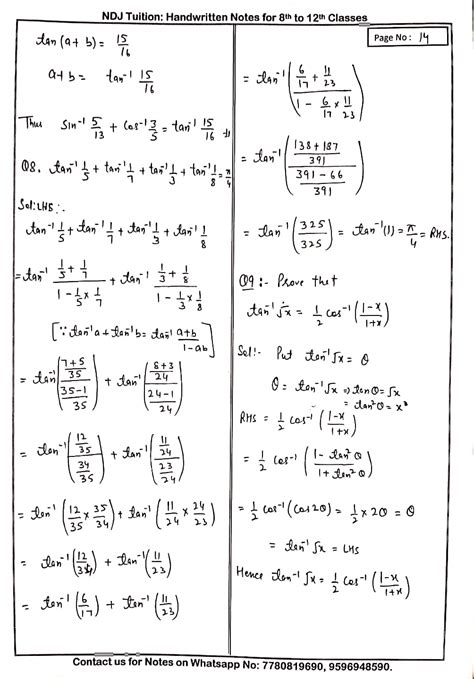 NDJ Tuition: Handwritten Notes for 8th to 12th Classes
Page No: 14
tan (a + b) = 15/16
a + b = tan⁻¹ 15/16
Thus sin⁻¹ 5/13 + cos⁻¹ 3/5 = tan⁻¹ 15/16
Q8. tan⁻¹ 1/5 + tan⁻¹ 1/7 + tan⁻¹ 1/3 + tan⁻¹ 1/8 = π/4
Sol: LHS :-
tan⁻¹ 1/5 + tan⁻¹ 1/7 + tan⁻¹ 1/3 + tan⁻¹ 1/8
= tan⁻¹ (1/5 + 1/7)/(1 - 1/5 × 1/7) + tan⁻¹ (1/3 + 1/8)/(1 - 1/3 × 1/8)
[∵ tan⁻¹a + tan⁻¹b = tan⁻¹ (a+b)/(1-ab)]
= tan⁻¹(((7+5)/35)/((35-1)/35)) + tan⁻¹(((8+3)/24)/((24-1)/24))
= tan⁻¹((12/35)/(34/35)) + tan⁻¹((11/24)/(23/24))
= tan⁻¹(12/35 × 35/34) + tan⁻¹(11/24 × 24/23)
= tan⁻¹(12/34) + tan⁻¹(11/23)
= tan⁻¹(6/17) + tan⁻¹(11/23)
= tan⁻¹((6/17 + 11/23)/(1 - 6/17 × 11/23))
= tan⁻¹(((138+187)/391)/((391-66)/391))
= tan⁻¹(325/325) = tan⁻¹(1) = π/4 = RHS.
Q9 :- Prove that
tan⁻¹√x = 1/2 cos⁻¹((1-x)/(1+x))
Sol:- Put tan⁻¹√x = θ
θ = tan⁻¹√x ⇒ tanθ = √x
⇒ tan²θ = x
RHS = 1/2 cos⁻¹((1-x)/(1+x))
= 1/2 cos⁻¹((1 - tan²θ)/(1 + tan²θ))
= 1/2 cos⁻¹(cos2θ) = 1/2 × 2θ = θ
= tan⁻¹√x = LHS
Hence tan⁻¹√x = 1/2 cos⁻¹((1-x)/(1+x))
Contact us for Notes on Whatsapp No: 7780819690, 9596948590.